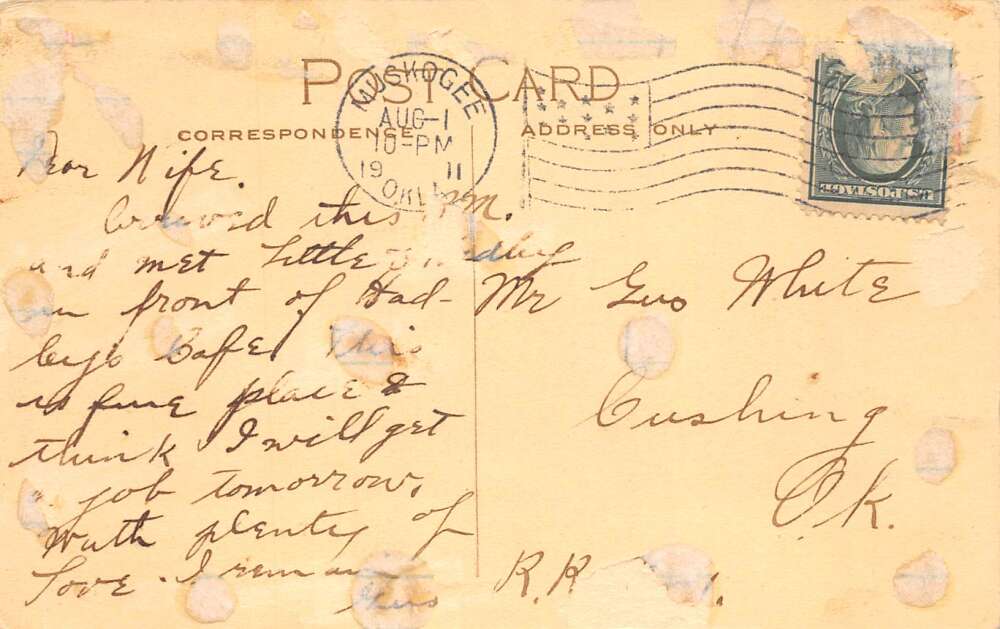 POST CARD
CORRESPONDENCE
ADDRESS ONLY
MUSKOGEE
AUG-1
10-PM
1911
OKLA.
U.S. POSTAGE
Dear Wife.
this PM.
and met Little
in front of Had-
ley's Cafe. This
is fine place &
think I will get
a job tomorrow,
with plenty of
love. I remain
Mr Geo White
Cushing
Ok.
R.R